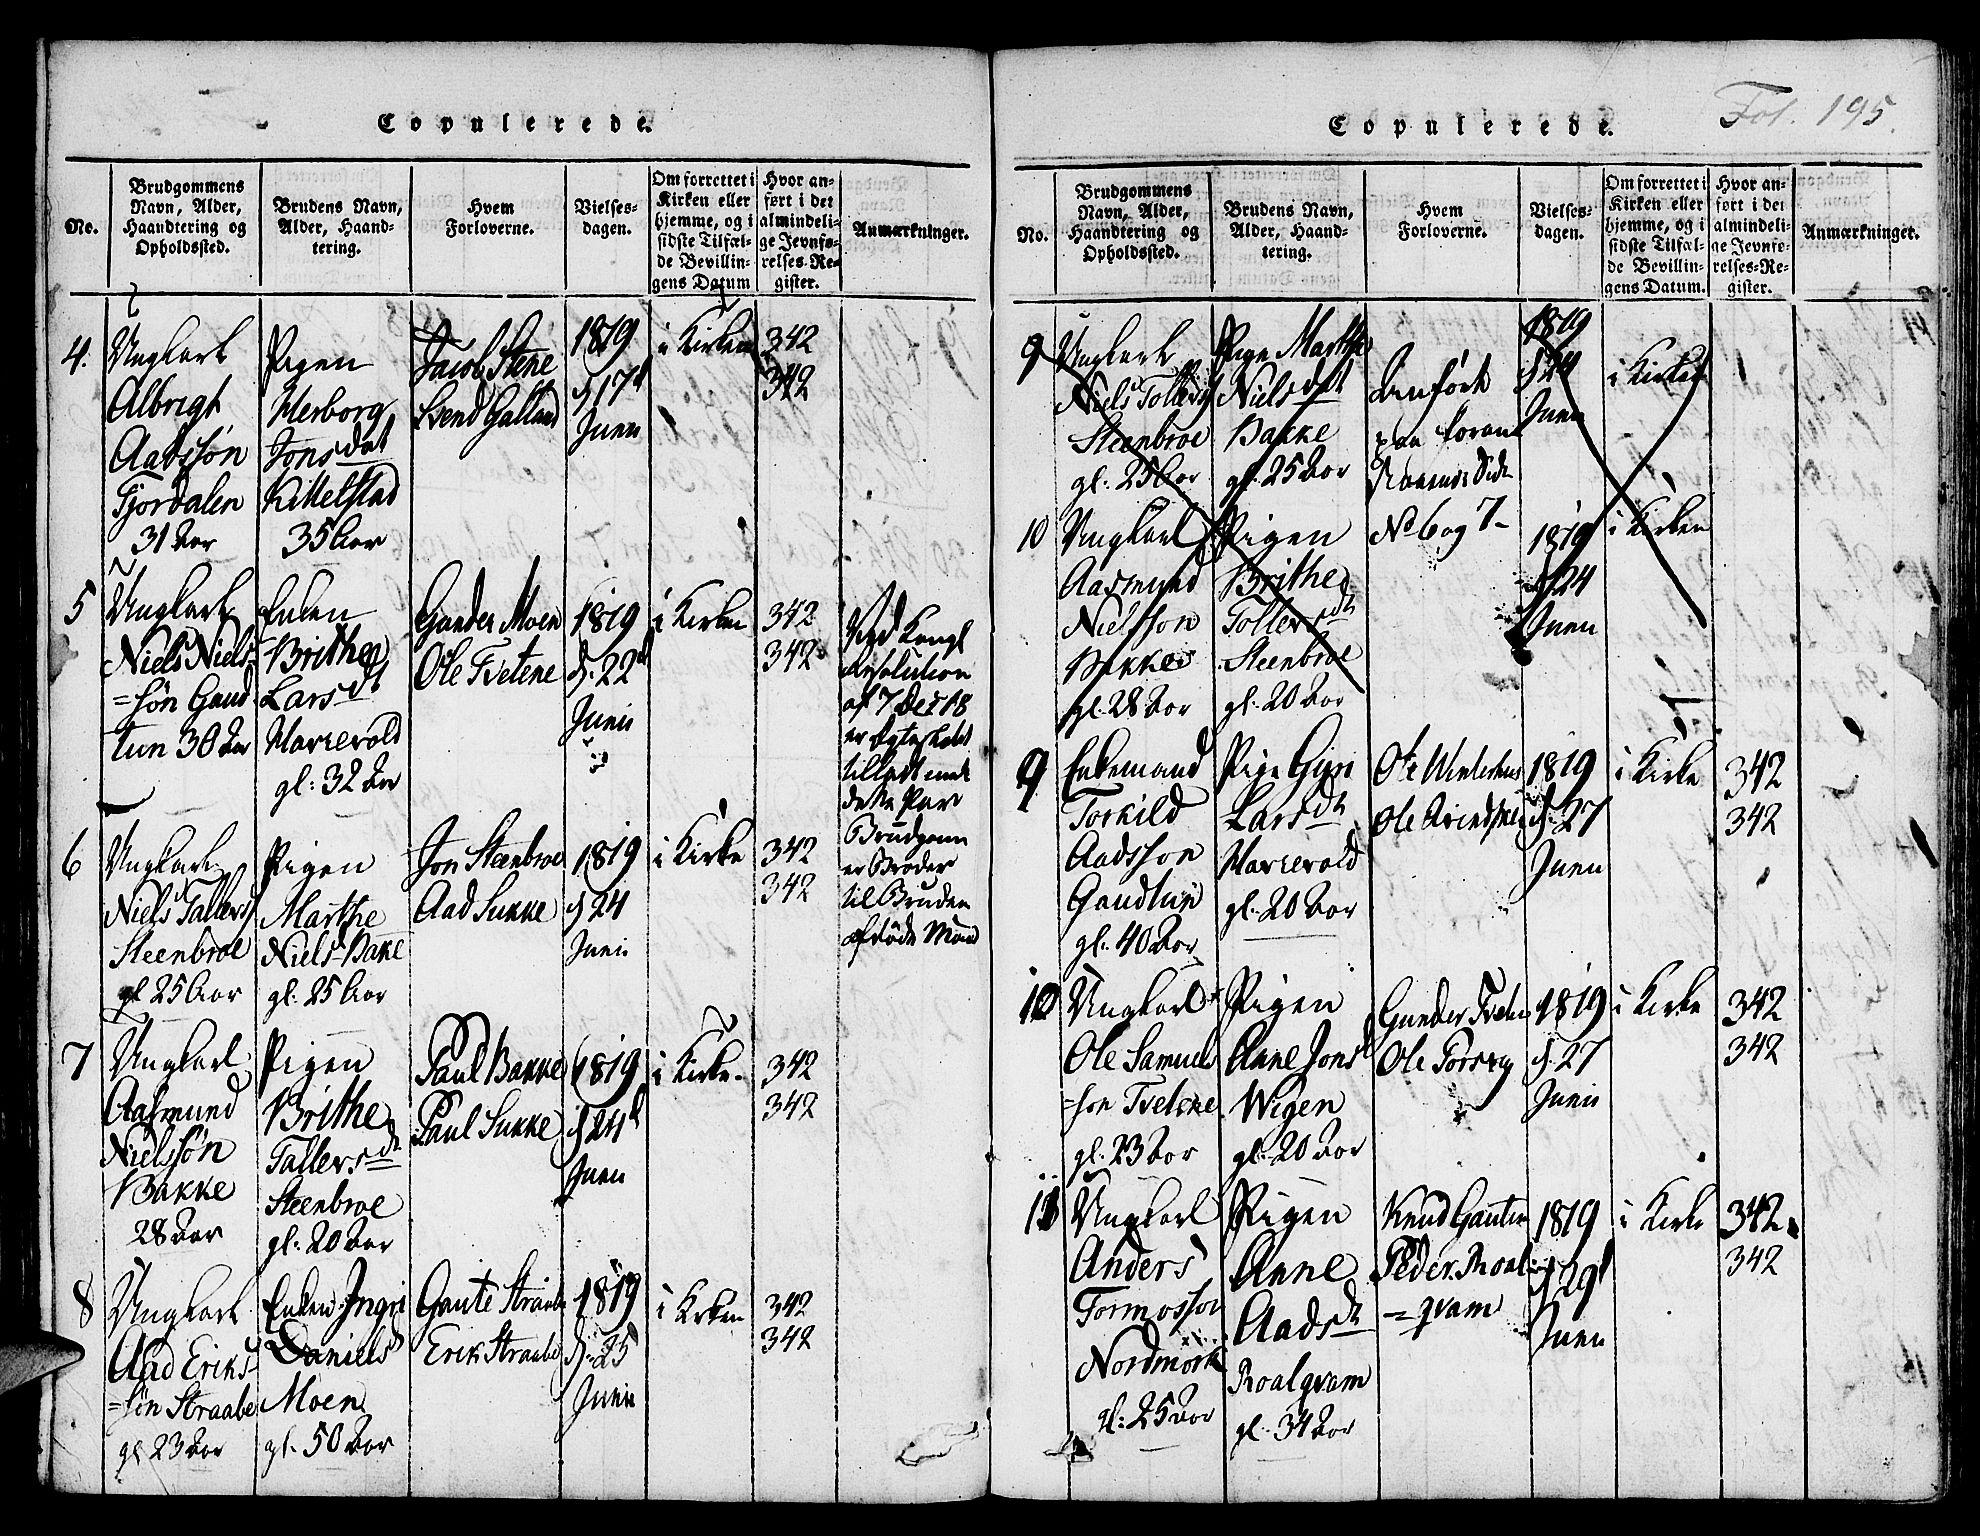 Copulerede.
No.
Brudgommens
Navn, Alder,
Haandtering og
Opholdssted.
Brudens Navn,
Alder, Haand-
tering.
Hvem
Forloverne.
Vielses-
dagen.
Om forrettet i
Kirken eller
hjemme, og i
sidste Tilfæl-
de Bevillin-
gens Datum
Hvor an-
ført i det
almindeli-
ge Jevnfø-
relses-Re-
gister.
Anmærkninger.
4.
Ungkarl
Albrigt
Aadssøn
Fjordalen
31 Aar
Pigen
Herborg
Jonsdat
Kittelstad
35 Aar
Jacob Stene
Svend Galland
1819
d 17d
Junii
i Kirken
342
342
5
Ungkarl
Niels Niels
=søn Gaud
tun 30 Aar
Enken
Brithe
Larsdt
Harrevold
gl: 32 Aar
Gunder Moen
Ole Tvetene
1819
d. 22d
Junii
i Kirken
342
342
Ved Kongl
Resolution
af 7 Det 18
er Egteskabet
tilladt mellem
dette Par
Brudgom
er Broder
til Bruden
afdøde Mand
6
Ungkarl
Niels Tallers
Steenbroe
gl 25 Aar
Pigen
Marthe
Niels Bake
gl. 25 Aar
Jon Steenbroe
Aad Sukke
1819
d 24
Junii
i Kirke
342
342
7
Ungkarl
Aasmund
Nielssøn
Bakke
28 Aar
Pigen
Brithe
Tallersdt
Steenbroe
gl. 20 Aar
Paul Bakke
Paul Sukke
1819
d 24d
Junii
i Kirke
342
342
8
Ungkarl
Aad Eriks
=søn Straabe
gl 23 Aar
Enken Ingri
Daniels
Moen
gl. 50 Aar
Gaute Straabe
Erik Straabe
1819
d. 25
Junii
i Kirken
342
342
Copulerede.
Fol. 195.
No.
Brudgommens
Navn, Alder,
Haandtering og
Opholdssted.
Brudens Navn,
Alder, Haand-
tering.
Hvem
Forloverne.
Vielses-
dagen.
Om forrettet i
Kirken eller
hjemme, og i
sidste Tilfæl-
de Bevillin-
gens Datum.
Hvor an-
ført i det
almindeli-
ge Jevnfø-
relses-Re-
gister.
Anmærkninger.
9
Ungkarl
Niels Tollers
Steenbroe
gl. 25 Aar
Pige Marthe
Nielsdat
Bakke
gl. 25 Aar
paa foran
Side
1819
d 24
Junii
i Kirken
10
Ungkarl
Aasmund
Nielsson
Bakke
gl. 28 Aar
Pigen
Brithe
Tollersdt
Steenbroe
gl. 20 Aar
No 6 og 7
1819
d 24
Junii
i Kirken
9
Enkemand
Torkild
Aadsson
Gaudtun
gl. 40 Aar
Pige Gyri
Larsdt
Harrevold
gl. 20 Aar
Ole Winterhus
Ole
1819
d. 27
Junii
i Kirke
342
342
10
Ungkarl
Ole Samuels
=son Tvetene
gl. 23 Aar
Pigen
Anne Jonsd
Wigen
gl. 20 Aar
Gunder Tveten
Ole
1819
d. 27
Junii
i Kirke
342
342
11
Ungkarl
Anders
Tormosson
Nordmork
gl. 25 Aar
Pigen
Anne
Aadsdt
Roalqvam
gl. 34 Aar
Knud
Peder Roal
=qvam
1819
d 29d
Junii
i Kirke
342
342